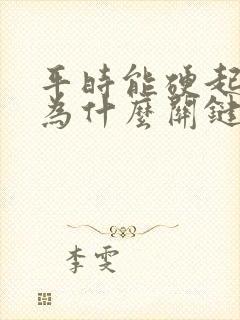 平時能硬起
為什麼關鍵
李雯